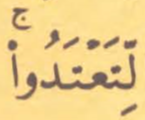 لِّتَعْتَدُوا۟ ۚ